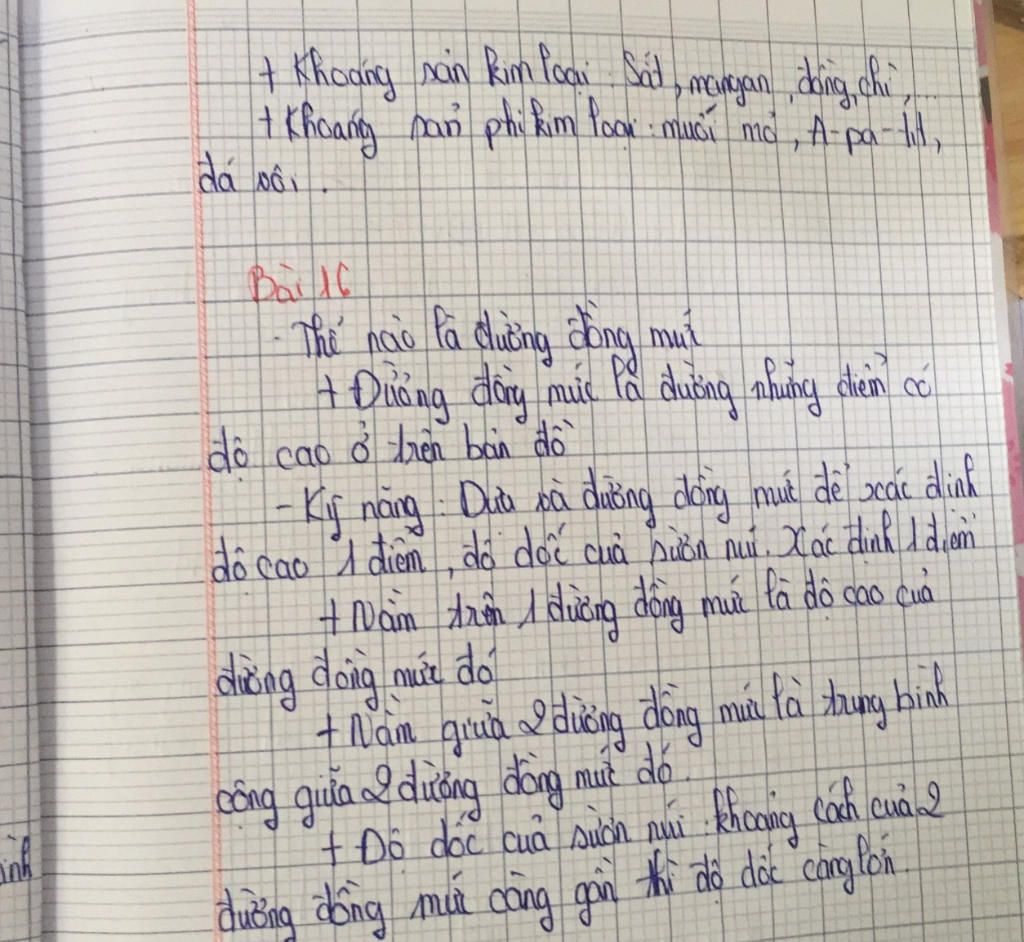 + Khoáng sản kim loại: Sắt, mangan, đồng, chì,...
+ Khoáng sản phi kim loại: muối mỏ, A-pa-tit,
đá vôi.
Bài 16
- Thế nào là đường đồng mức
+ Đường đồng mức là đường những điểm có
độ cao ở trên bản đồ
- Kỹ năng: Dựa và đường đồng mức để xác định
độ cao 1 điểm, độ dốc của sườn núi. Xác định 1 điểm
+ Nằm trên 1 đường đồng mức là độ cao của
đường đồng mức đó
+ Nằm giữa 2 đường đồng mức là trung bình
cộng giữa 2 đường đồng mức đó.
+ Độ dốc của sườn núi: khoảng cách của 2
đường đồng mức càng gần thì độ dốc càng lớn.
inh